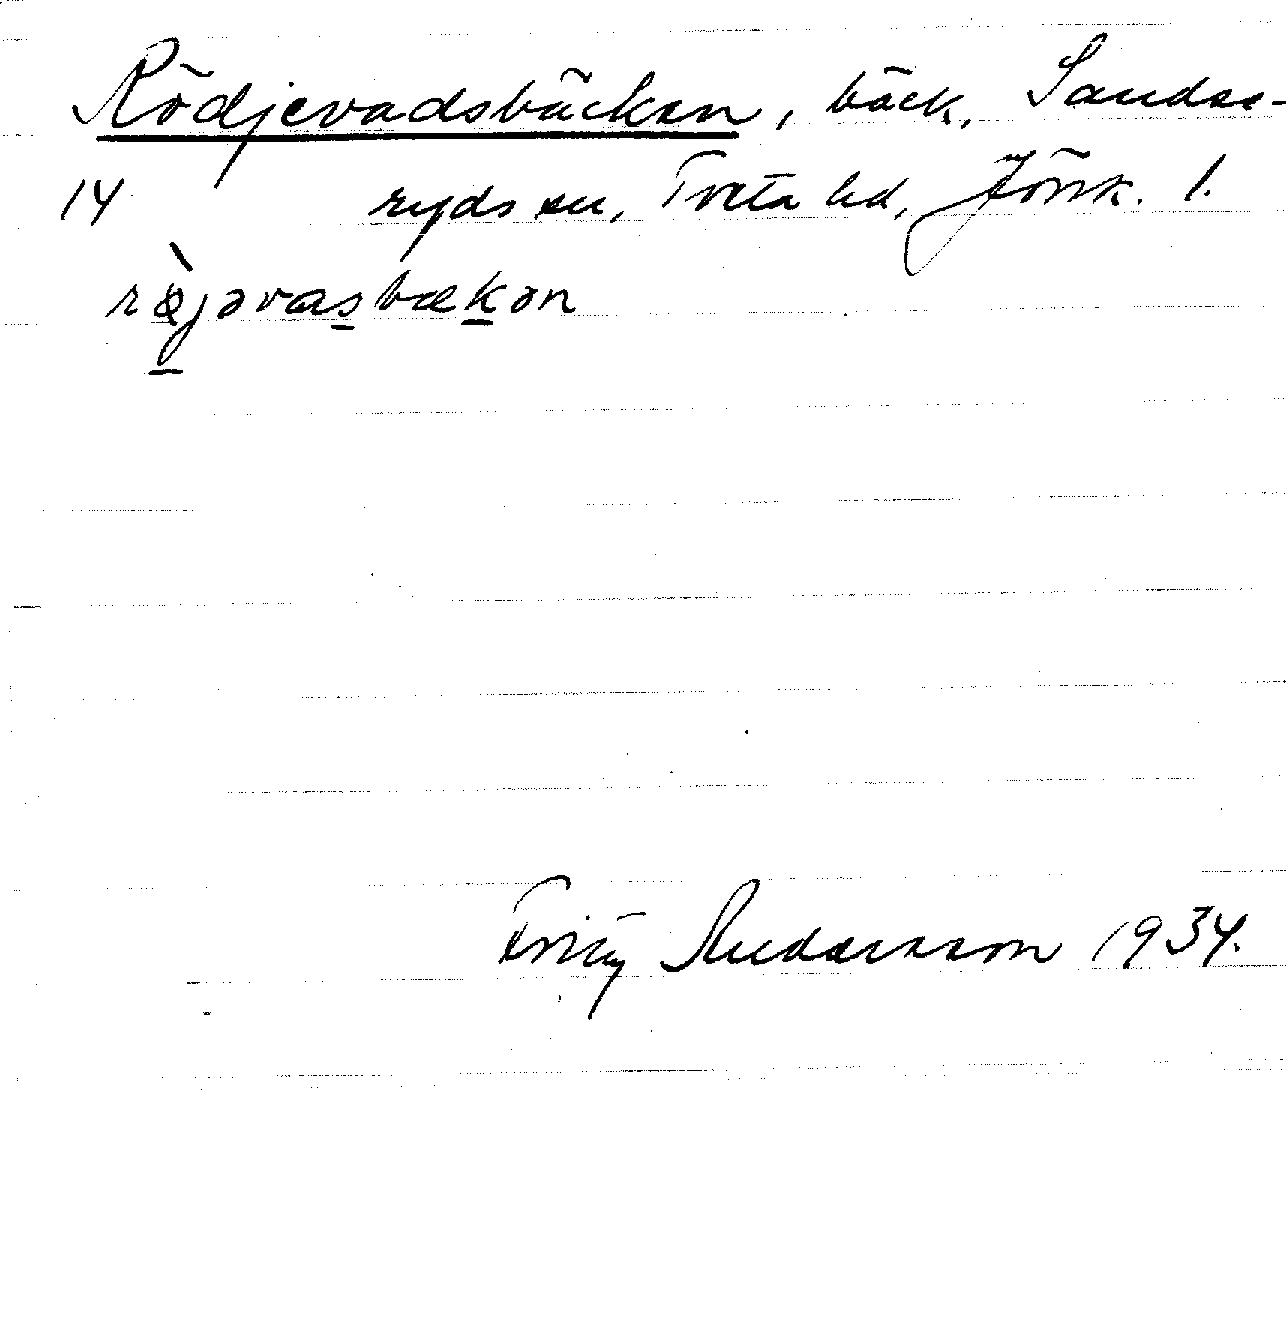 Rödjevadsbäcken, bäck, Sandse-
14 ryds sn, Tveta hd, Jönk. l.
röjəvasbækən
Fritz Andersson 1934.